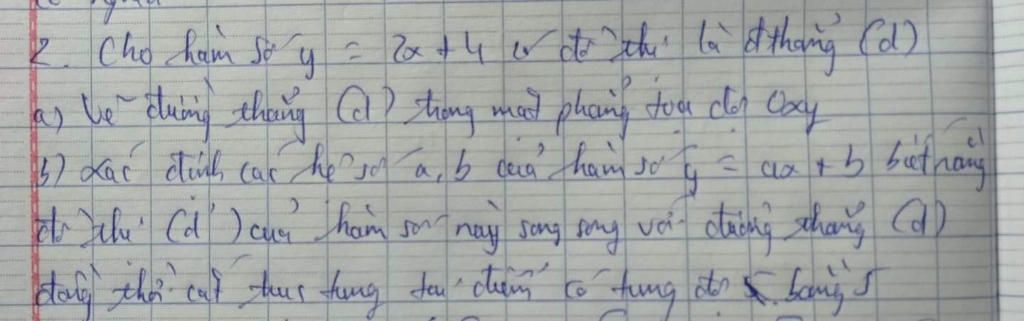 2. Cho hàm số y = 2x + 4 có đồ thị là đ thẳng (d)
a) Vẽ đường thẳng (d) trong mặt phẳng tọa độ Oxy
b) Xác định các hệ số a, b của hàm số y = ax + b biết rằng
đồ thị (d') của hàm số này song song với đường thẳng (d)
đồng thời cắt trục tung tại điểm có tung độ bằng 5